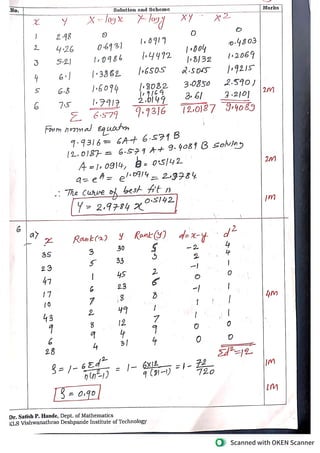 No. Solution and Scheme Marks
x y X = logx Y = logy XY X2
1 2.98 0 1.0919 0 0
2 4.26 0.6931 1.4492 1.004 0.4803
3 5.21 1.0986 1.6505 1.8132 1.2069
4 6.1 1.3862 1.8082 2.5065 1.9215
5 6.8 1.6094 1.9169 3.0850 2.5901
6 7.5 1.7917 2.0149 3.61 3.2101 2M
Σ 6.579 9.9316 12.0187 9.4089
Form normal equation
9.9316 = 6A + 6.579 B
12.0187 = 6.579 A + 9.4089 B solving
A = 1.0914, B = 0.5142 2M
a = e^A = e^1.0914 = 2.9784
∴ The curve of best fit is
Y = 2.9784 x^0.5142 1M
6 a)
x Rank(x) y Rank(y) d=x-y d²
35 3 30 5 -2 4
23 5 33 3 2 4
47 1 45 2 -1 1
17 6 23 6 0 0
10 7 8 8 -1 1
43 2 49 1 1 1
9 8 12 7 1 1
6 9 4 9 0 0
28 4 31 4 0 0
Σd²=12 4M
ρ = 1 - 6Σd²/n(n²-1) = 1 - 6x12/9(81-1) = 1 - 72/720 1M
ρ = 0.90 1M
Dr. Satish P. Hande, Dept. of Mathematics
KLS Vishwanathrao Deshpande Institute of Technology
Scanned with OKEN Scanner